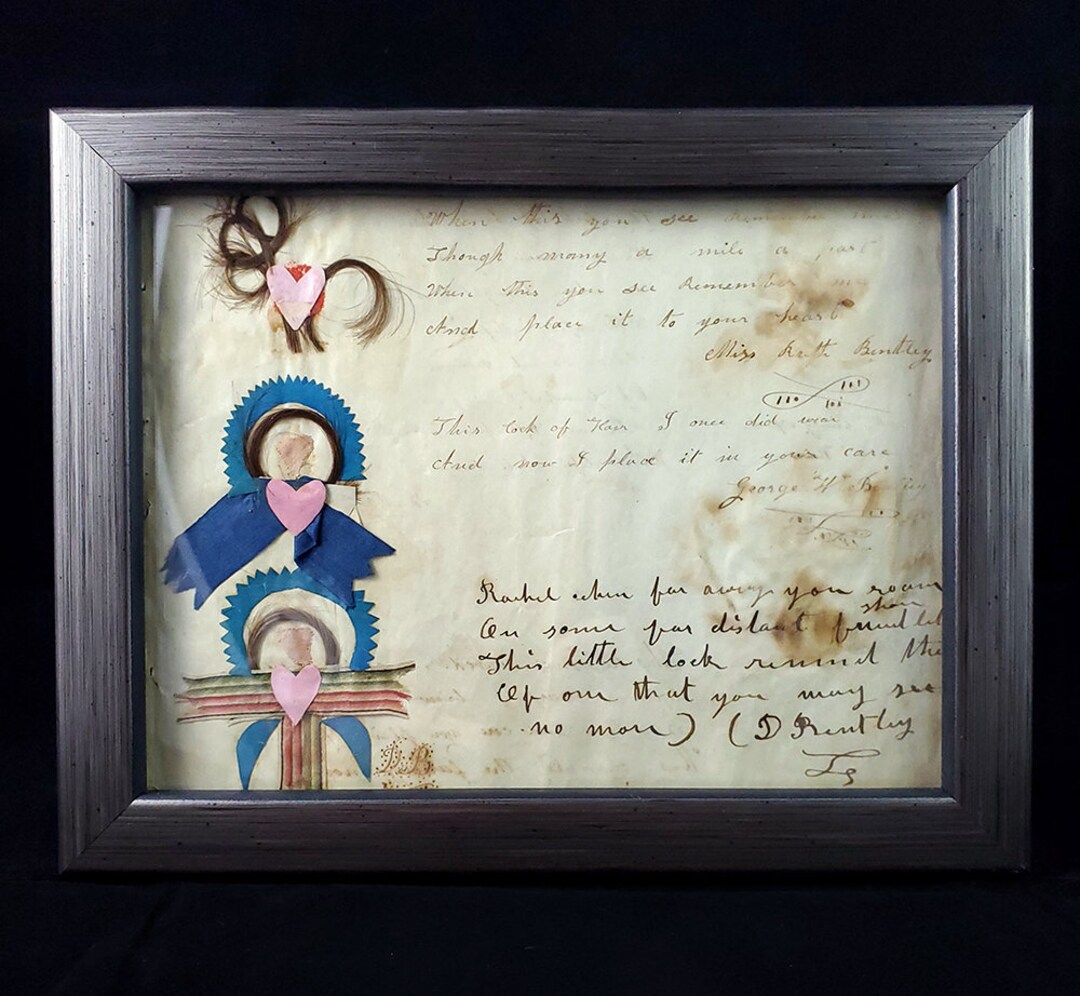 When this you see remember me
Though many a mile a part
When this you see Remember me
And place it to your heart
Miss Ruth Bentley
This lock of Hair I once did wear
And now I place it in your care
George W
Rachel when far away you roam
shore
On some far distant
This little lock remind the
Of one that you may see
no more) (D Bentley